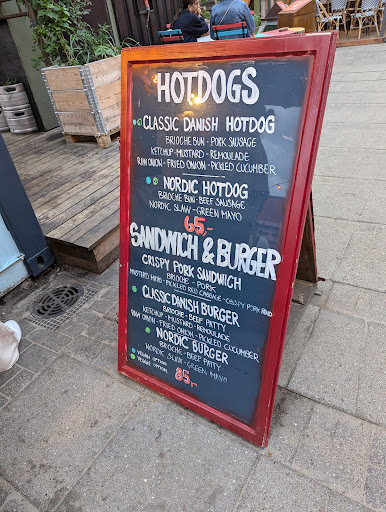 HOTDOGS
CLASSIC DANISH HOTDOG
BRIOCHE BUN - PORK SAUSAGE
KETCHUP - MUSTARD - REMOULADE
RAW ONION - FRIED ONION - PICKLED CUCUMBER
NORDIC HOTDOG
BRIOCHE BUN - BEEF SAUSAGE
NORDIC SLAW - GREEN MAYO
65,-
SANDWICH & BURGER
CRISPY PORK SANDWICH
BRIOCHE - PORK
MUSTARD MAYO - PICKLED RED CABBAGE - CRISPY PORK RIND
CLASSIC DANISH BURGER
BRIOCHE - BEEF PATTY
KETCHUP - MUSTARD - REMOULADE
RAW ONION - FRIED ONION - PICKLED CUCUMBER
NORDIC BURGER
BRIOCHE - BEEF PATTY
NORDIC SLAW - GREEN MAYO
VEGAN OPTION
VEGGIE OPTION
85,-